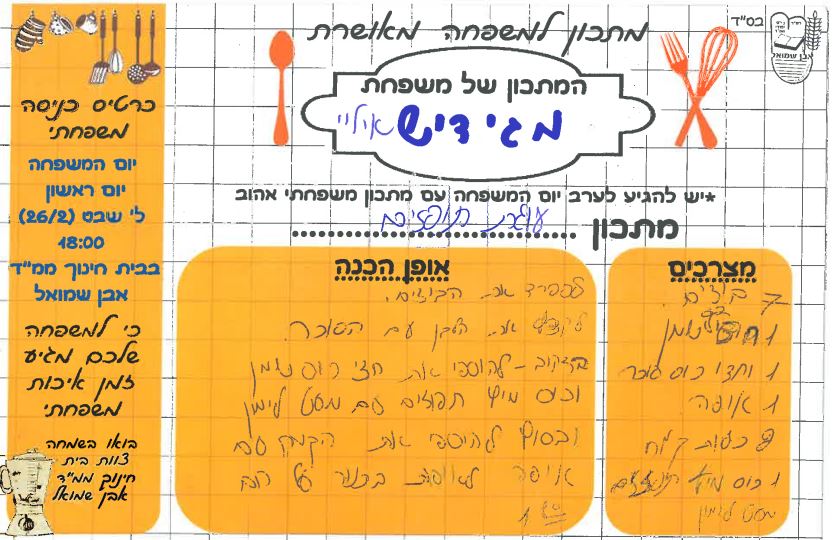 בס"ד
אבן שמואל
מתכון למשפחה מאושרת
המתכון של משפחת
מגידיש איליי
*יש להגיע לערב יום המשפחה עם מתכון משפחתי אהוב
מתכון עוגת תפוזים
כרטיס כניסה
משפחתי
יום המשפחה
יום ראשון
ל' שבט (26/2)
18:00
בבית חינוך ממ"ד
אבן שמואל
כי למשפחה
שלכם מגיע
זמן איכות
משפחתי
בואו בשמחה
צוות בית
חינוך ממ"ד
אבן שמואל
מצרכים
7 ביצים
1 שמן
1 וחצי כוס סוכר
1 אופה
2 כוסות קמח
1 כוס מיץ תפוזים
מעט לימון
אופן הכנה
להפריד את הביצים.
להקציף את הלבן עם הסוכר.
להוסיף את חצי כוס שמן
וכוס מיץ תפוזים עם מעט לימון
ובסוף להוסיף את הקמח עם
אופה לאפות בתנור על חום